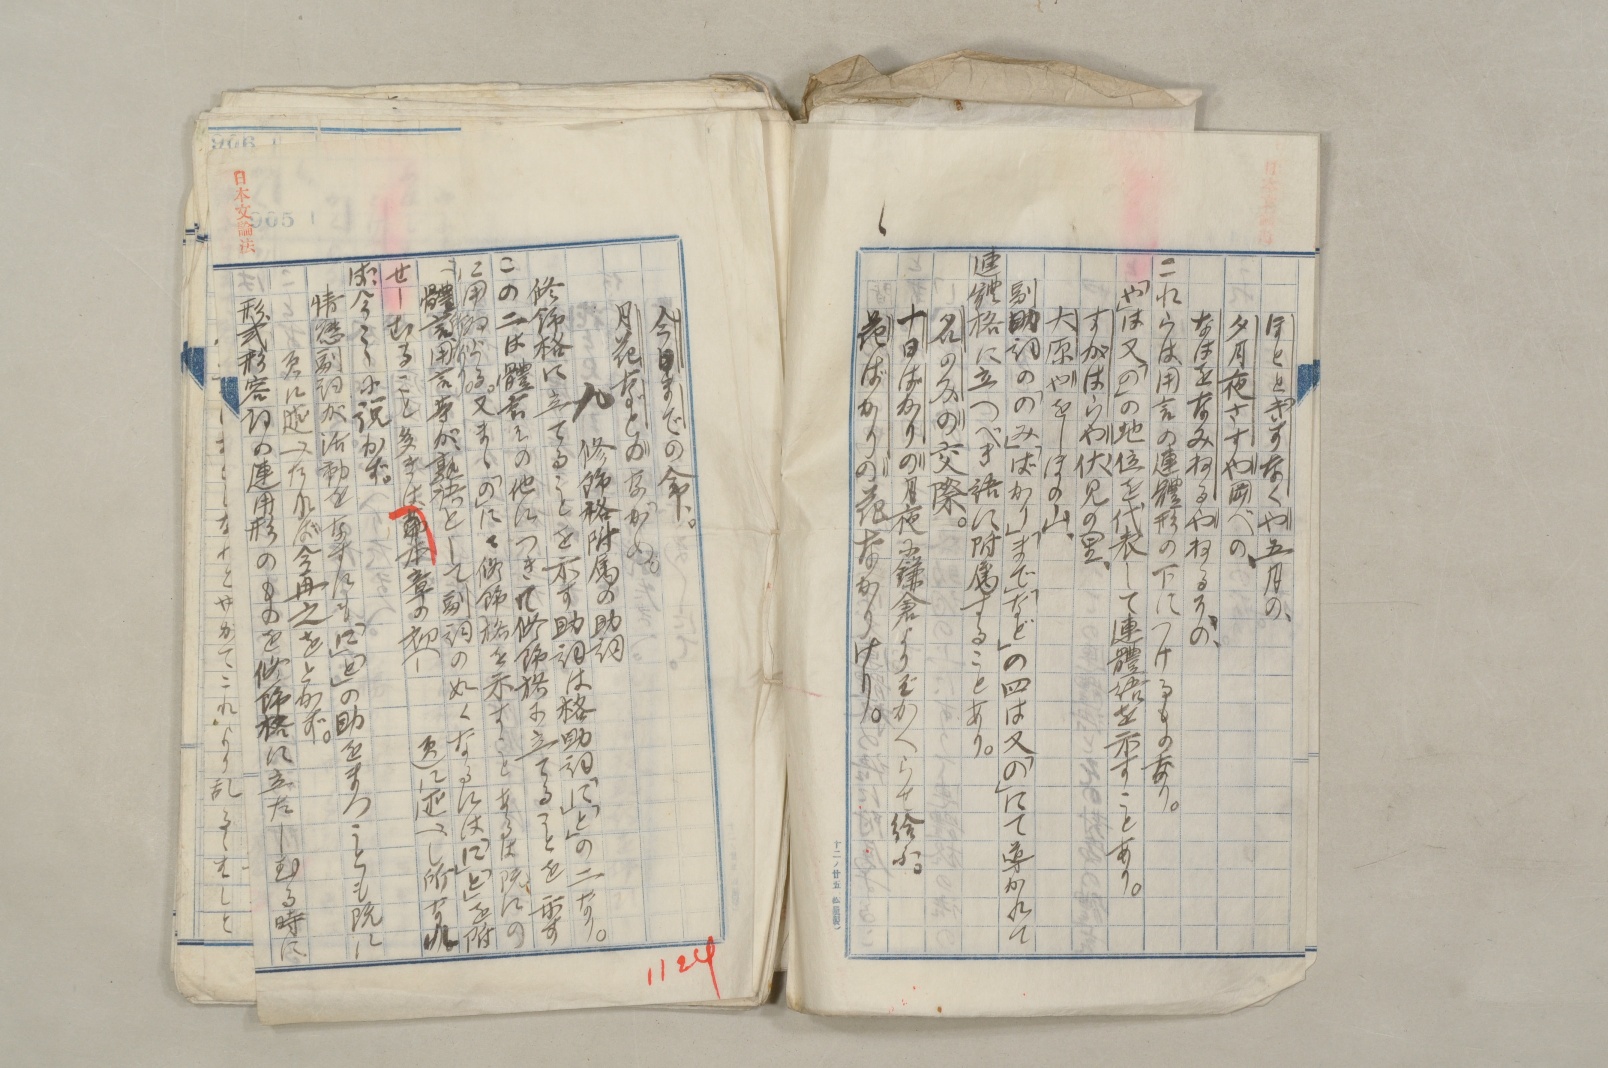 ほととぎすなくや五月の、
夕月夜さすや岡べの
なはをなみねるやねるの、
これらは用言の連體形の下につけるものなり。
「や」は又「の」の地位を代表して連體語を示すことあり。
すがはらや伏見の里、
大原やをしほの山、
副助詞の「のみ」「ばかり」「まで」「など」の四は又「の」にて導かれて
連體格に立つべき語に附属することあり。
名のみの交際。
十日ばかりの月夜に鎌倉より
花ばかりの花なかりけり。
十二ノ廿五 松屋製
今日までの命。
月花などのながめ
八 修飾格附属の助詞
修飾格に立てることを示す助詞は格助詞「に」「と」の二なり。
この二は體言その他につきて修飾格に立てることを示す
に用ゐらる。又まゝ「の」にて修飾格を示すことあるは既にの
體言用言等が熟語として副詞の如くなるには「に」「と」を附
せしむること多きは本章の初 既に述べし所なれ
ば、今こゝに説かず。
情態副詞が活動をなすにも「に」「と」の助をまつことも既に
既に述べたれば今再之をとかず。
形式形容詞の連用形のものを修飾格に立たしむる時に
日本文論法
906
905
1124